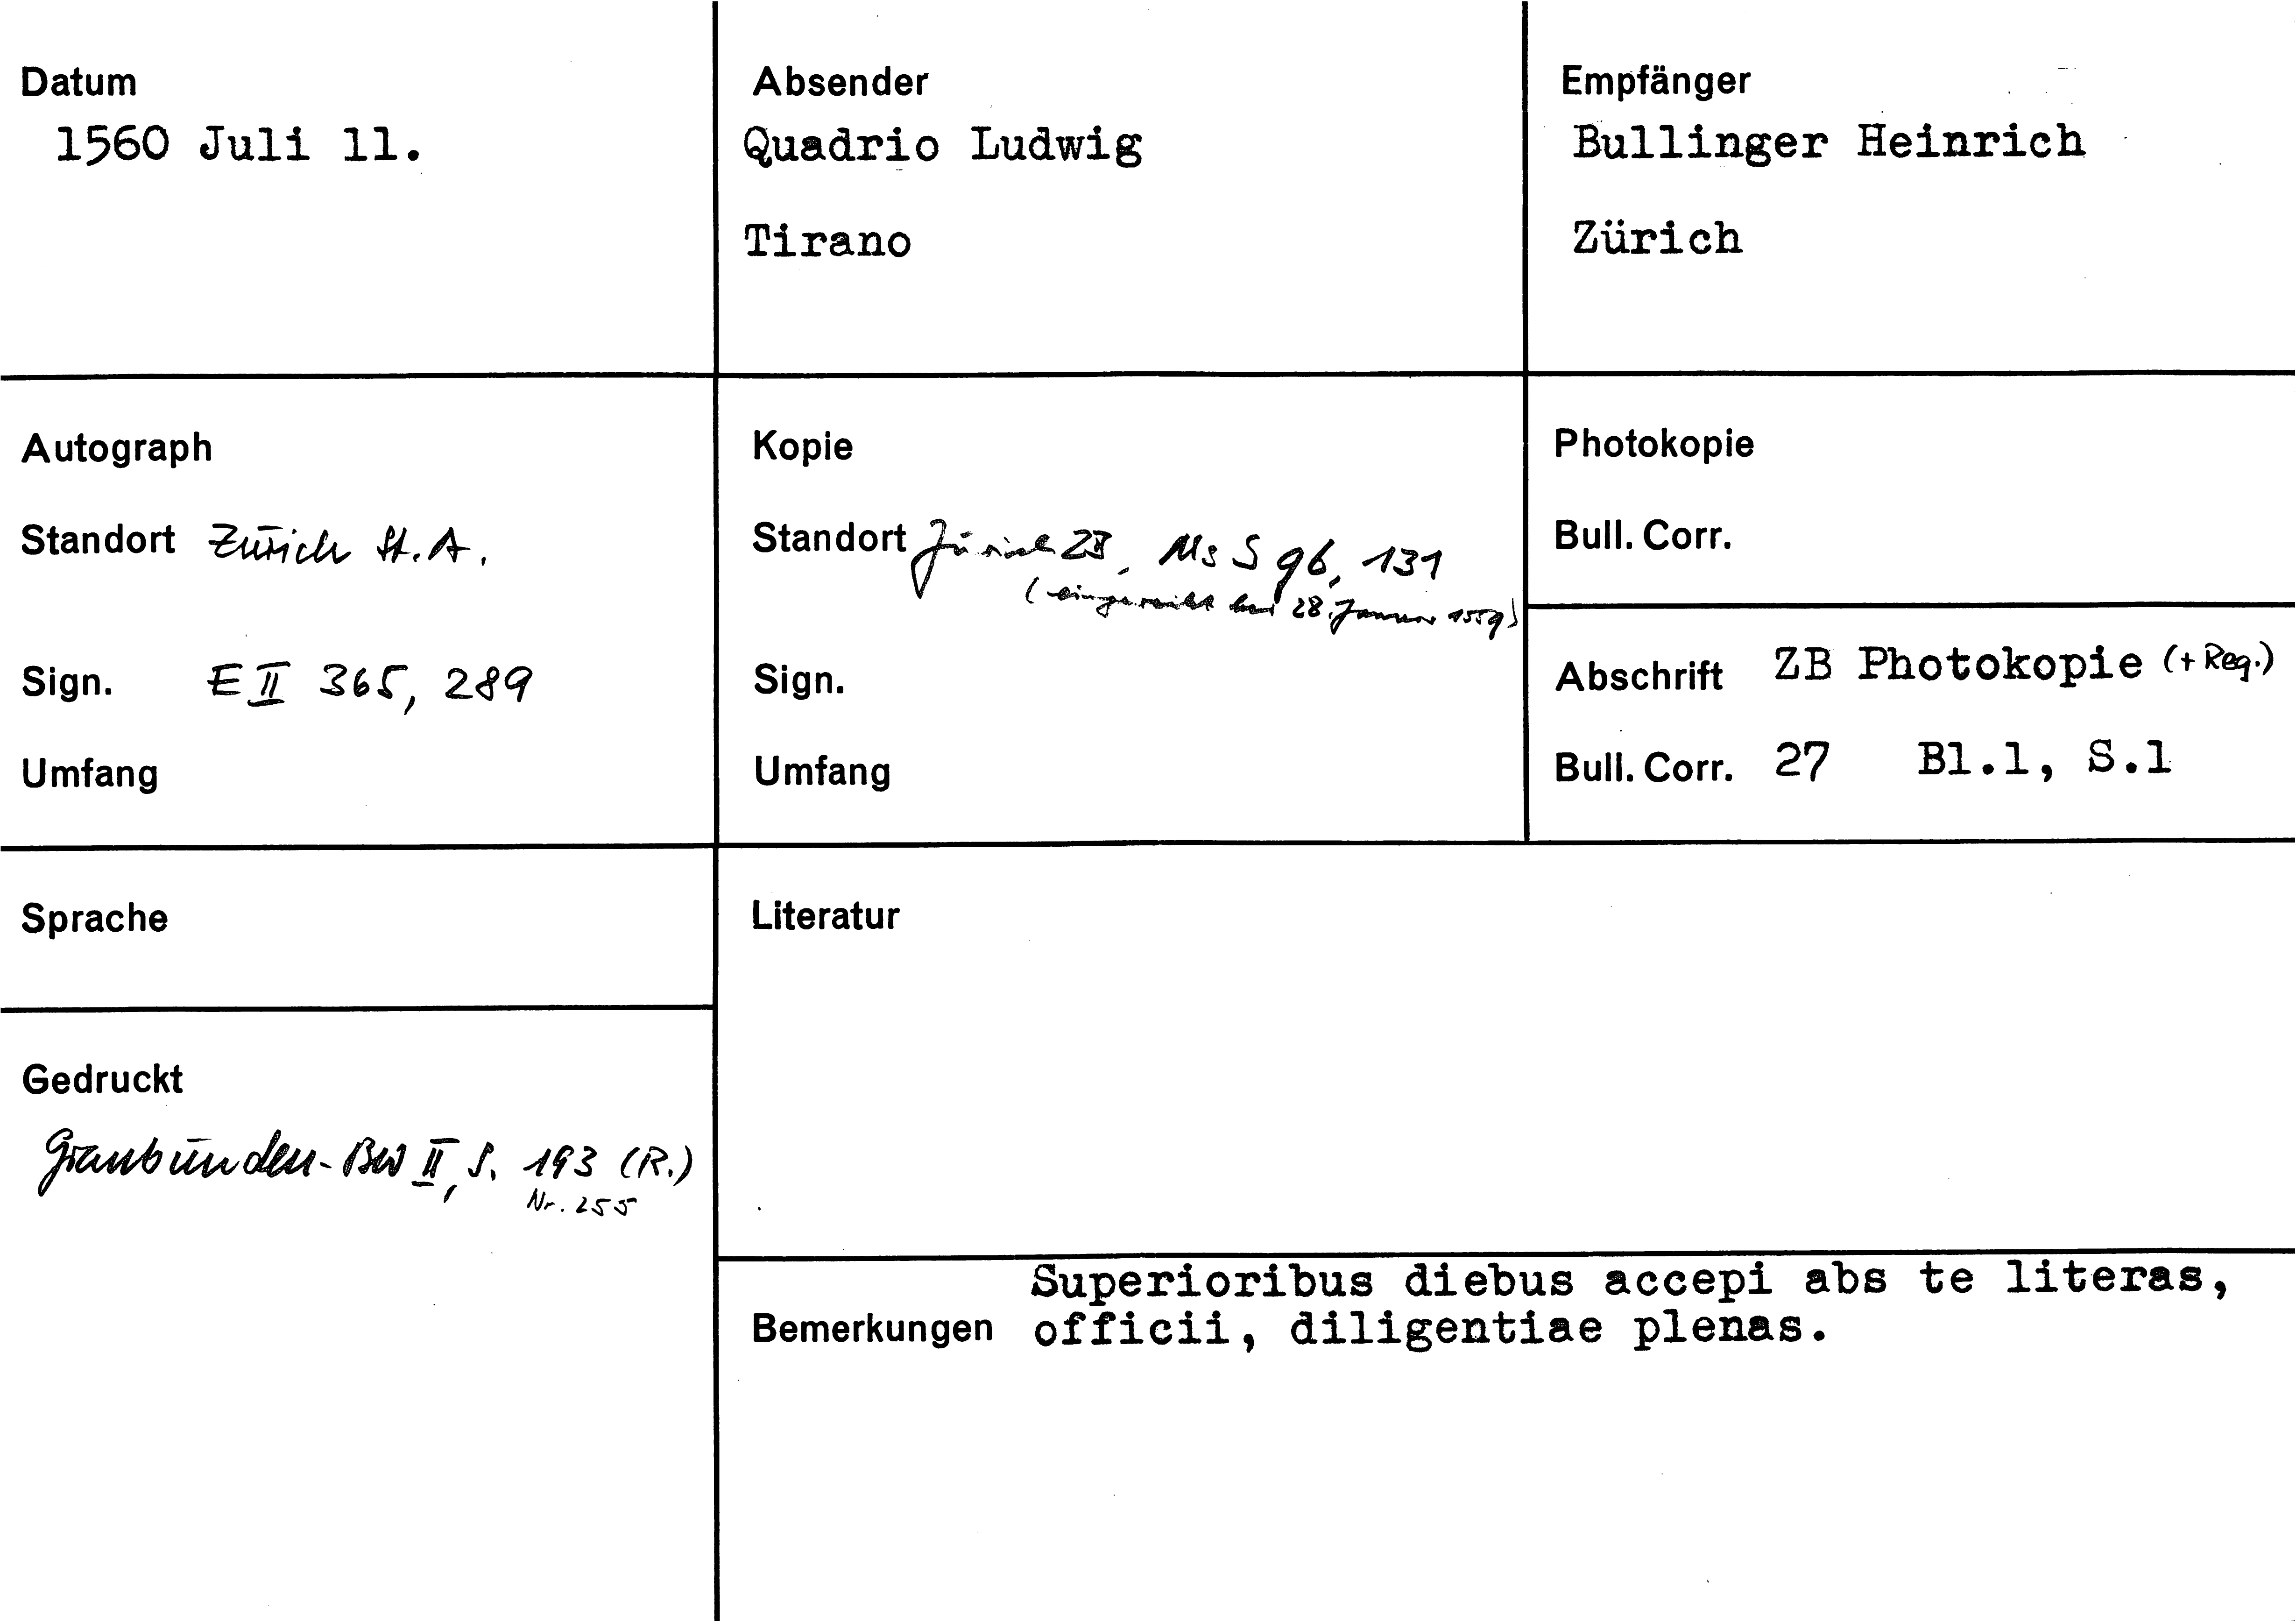 Datum
1560 Juli 11.
Absender
Quadrio Ludwig
Tirano
Empfänger
Bullinger Heinrich
Zürich
Autograph
Standort Zürich St.A.
Sign. E II 365, 289
Umfang
Kopie
Standort Zürich ZB, Ms S 96, 131
(eingereiht bei 28. Januar 1559)
Sign.
Umfang
Photokopie
Bull. Corr.
Abschrift ZB Photokopie (+ Reg.)
Bull. Corr. 27 Bl.1, S.1
Sprache
Gedruckt
Graubünden-BW II, S. 193 (R.)
Nr. 255
Literatur
Bemerkungen Superioribus diebus accepi abs te literas,
officii, diligentiae plenas.